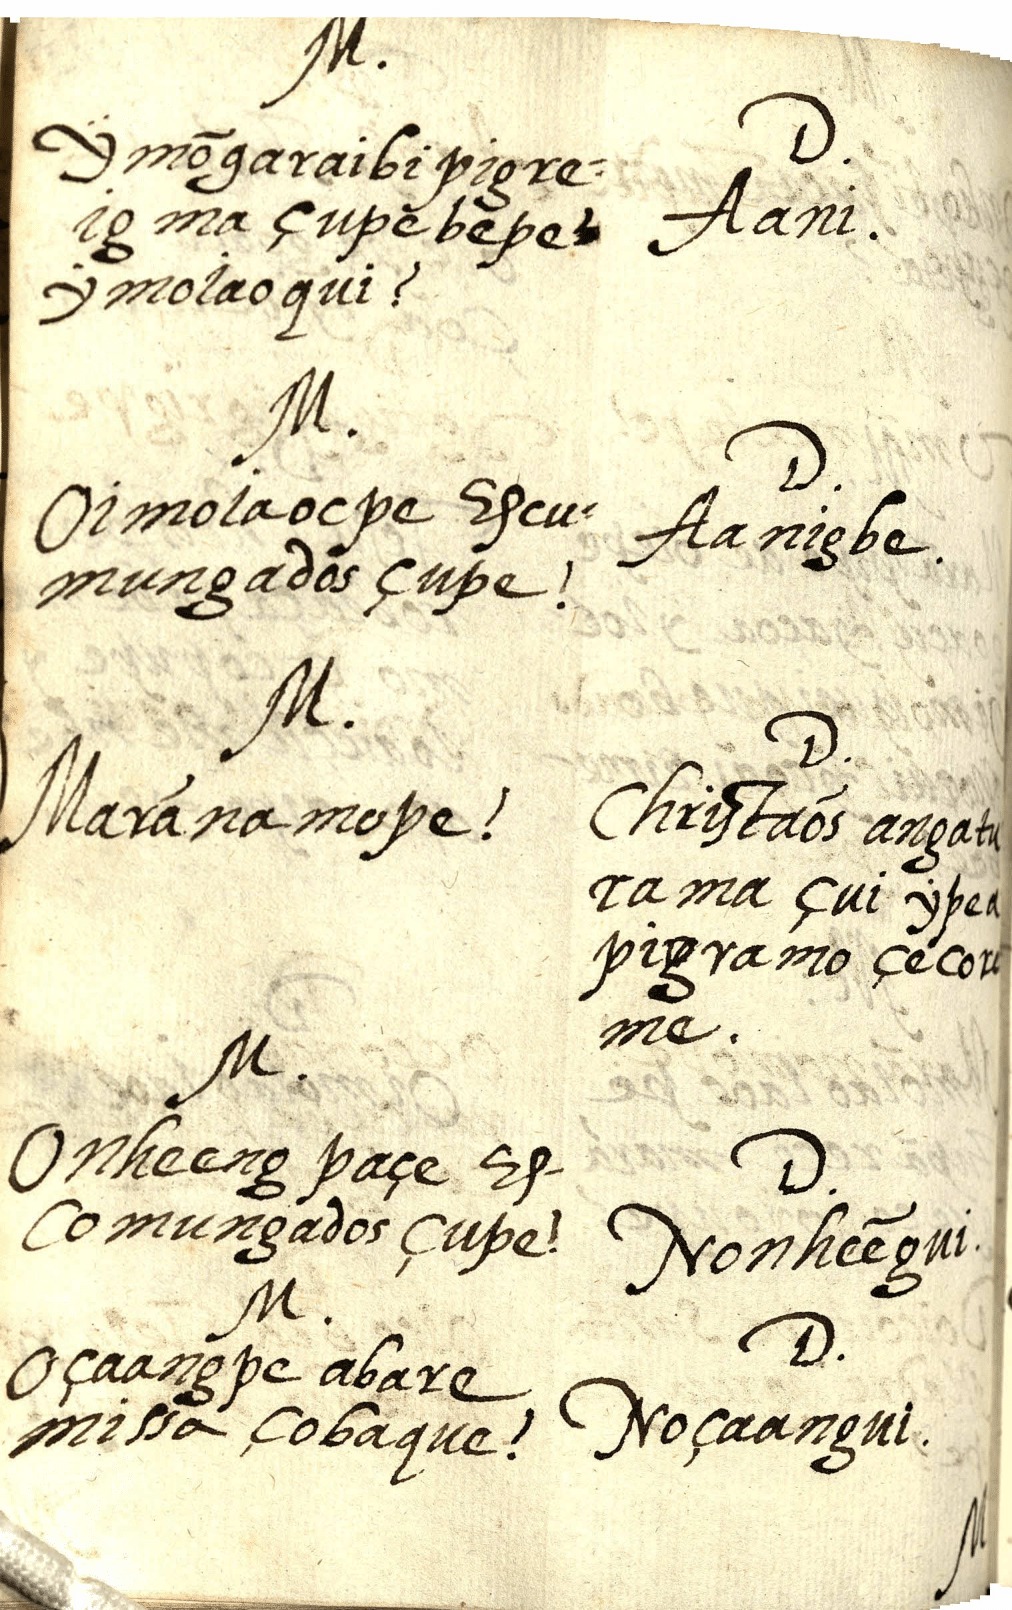 M.
Ÿ mõgaraibi pigre=
ig ma çupe bepe?
ÿmoiaoqui?
D.
Aani.
M.
Oimoiaocpe Escu=
mungados çupe?
D.
Aanigbe.
M.
Maránamope?
D.
Christaõs angatu
rama çui ÿpea
pigramo çecore
me.
M.
Onheeng paçe Es-
Comungados çupe?
D.
Nonheẽgui.
M.
Oçaangpe abare
missa çobaque?
D.
Noçaangui.
M